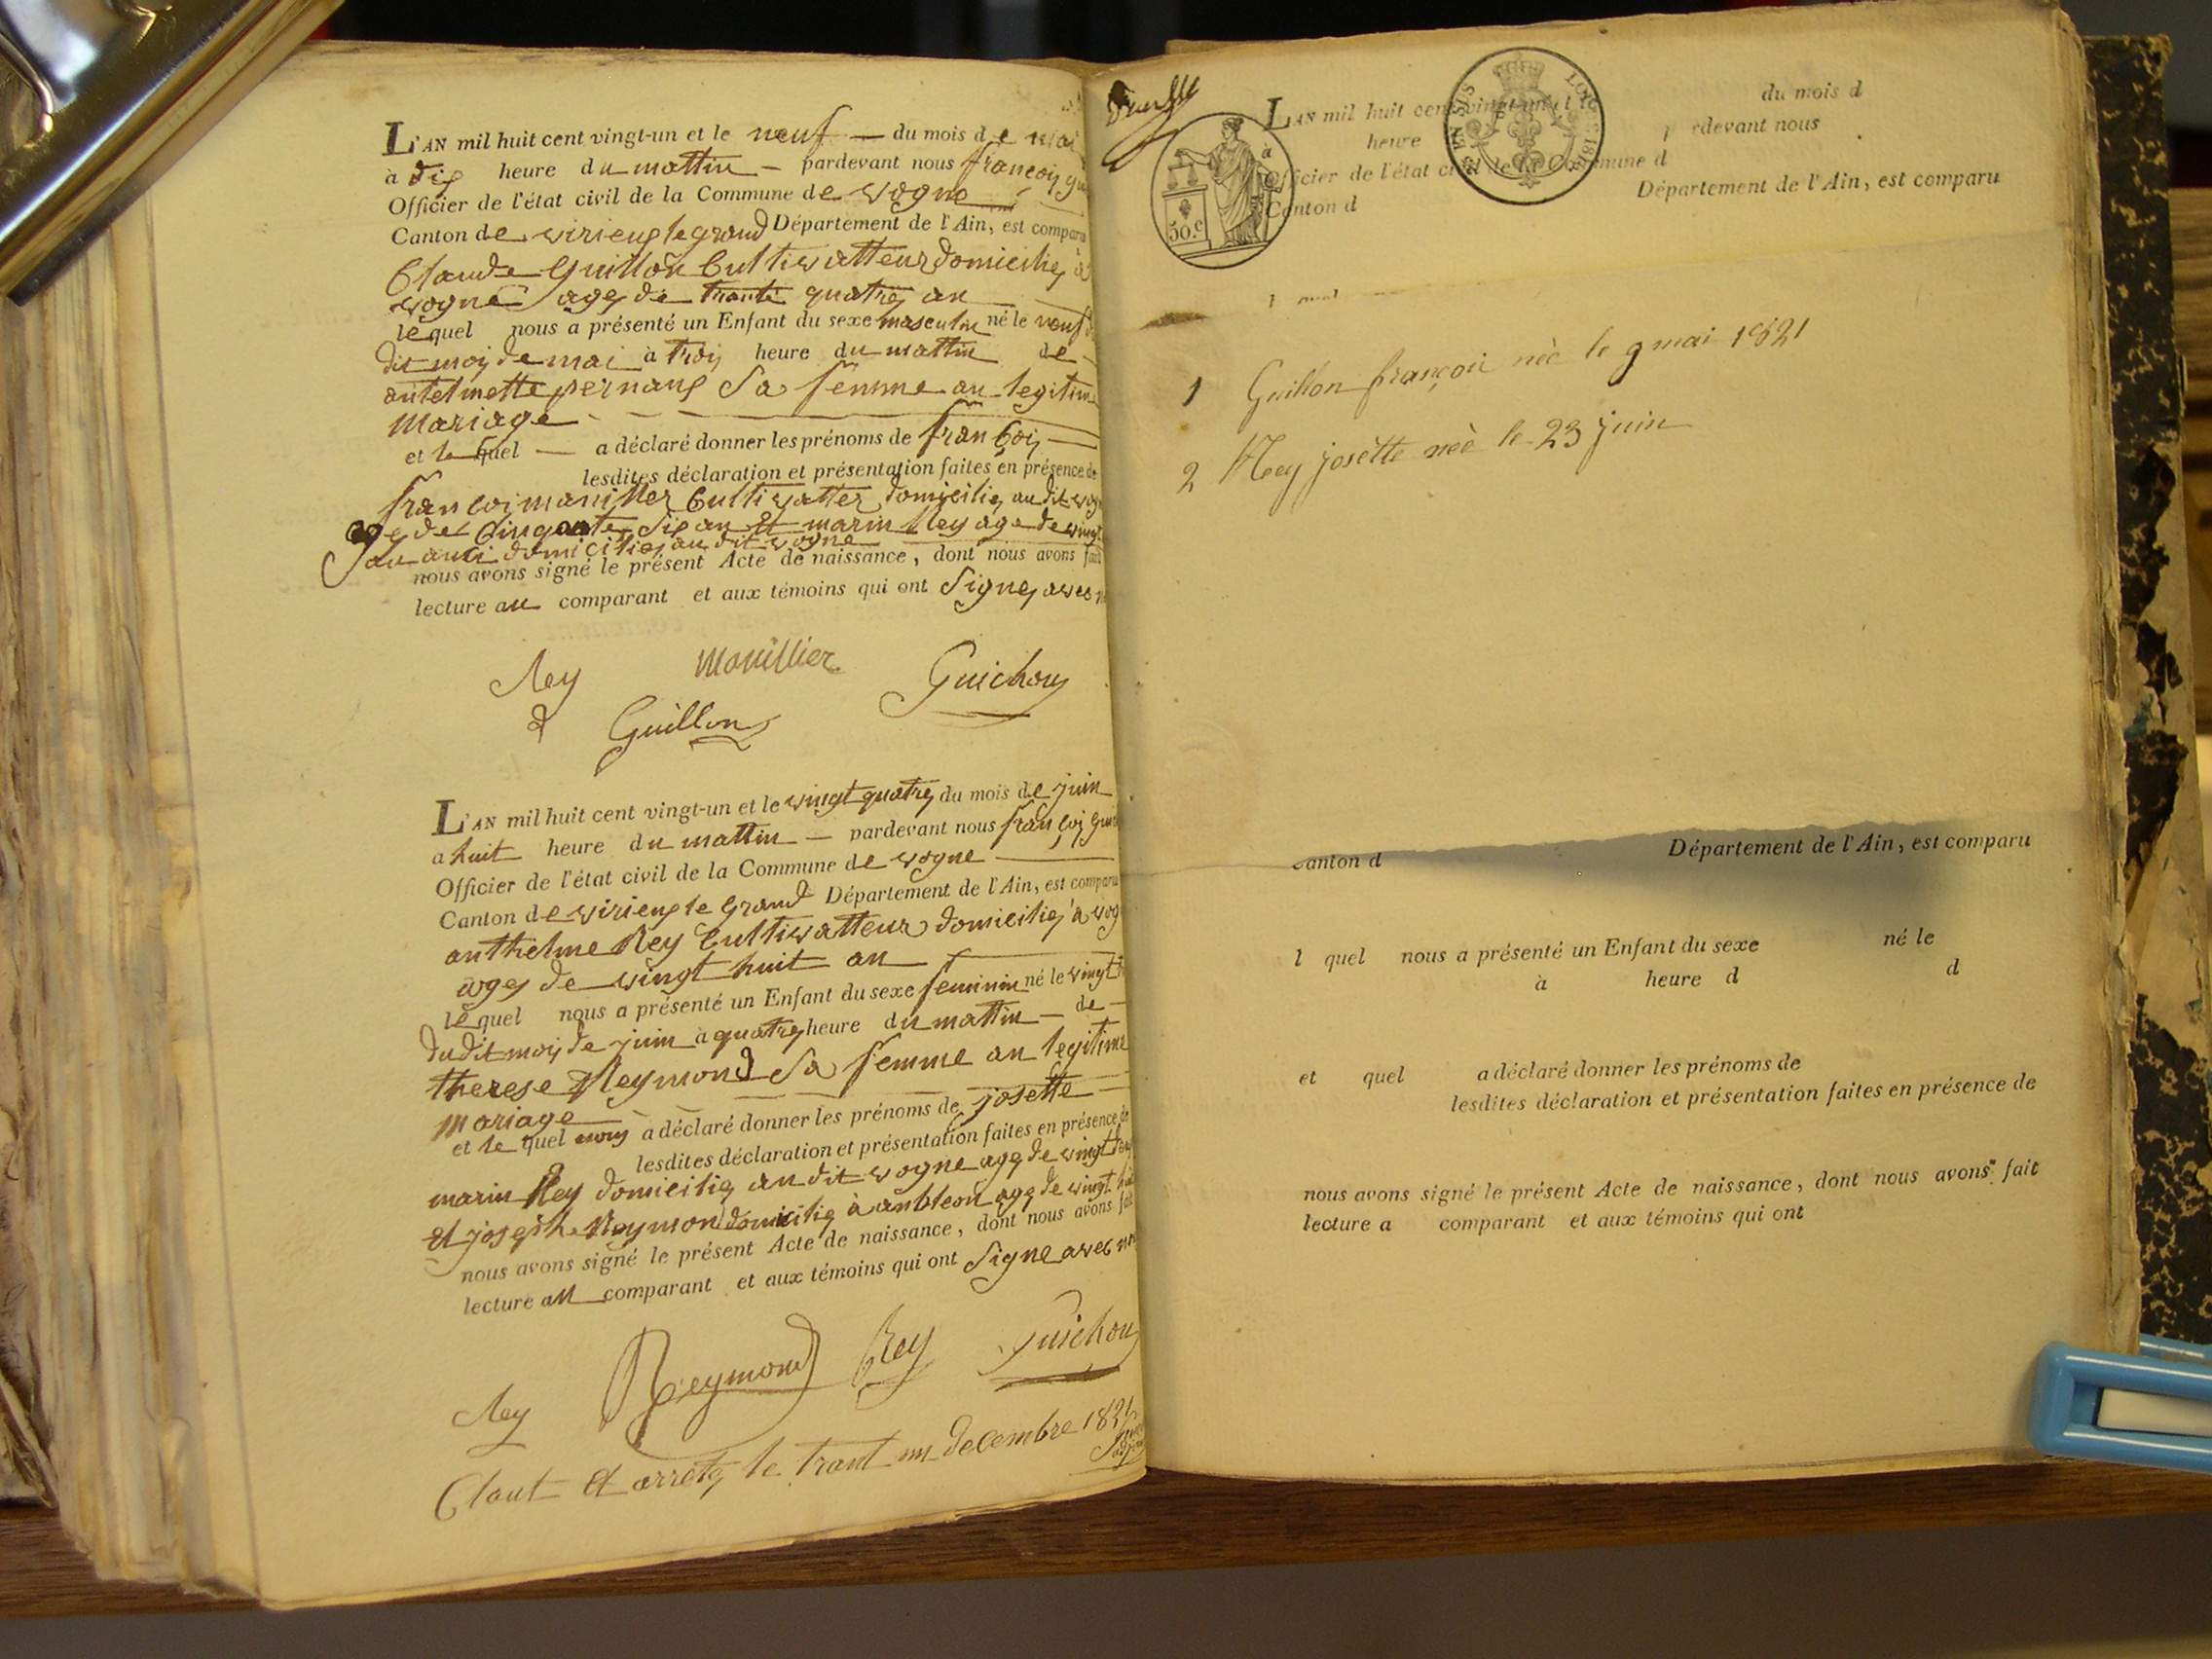 L'AN mil huit cent vingt-un et le neuf — du mois de mai
à dix heure du mattin — pardevant nous françois
Officier de l'état civil de la Commune de vogne
Canton de virieux le grand Département de l'Ain, est comparu
Claude Guillon Cultivatteur domicilié à
vogne agez de trante quatrez an
lequel nous a présenté un Enfant du sexe masculin né le neuf
dit moij de mai à troij heure du mattin de
antelmette pernang Sa femme an legitime
mariage
et le quel — a déclaré donner les prénoms de françois
lesdites déclaration et présentation faites en présence de
françoi manillier Cultivatter domicilié au dit
de Cinquante six an et marin Rey age de vingt
an aussi domicilié au dit vogne
nous avons signé le présent Acte de naissance, dont nous avons fait
lecture au comparant et aux témoins qui ont Signez avec
Rey Manillier Guichon
Guillon
L'AN mil huit cent vingt-un et le vingt quatrez du mois de juin
a huit heure du mattin — pardevant nous françoi
Officier de l'état civil de la Commune de vogne
Canton de virieux le Grand Département de l'Ain, est comparu
anthelme Rey Cultivatteur domicilié à
agez de vingt huit an
lequel nous a présenté un Enfant du sexe feminin né le vingt
du dit moij de juin à quatrez heure du mattin — de
therese Reymond Sa femme an legitime
mariage
et le quel nous a déclaré donner les prénoms de josette
lesdites déclaration et présentation faites en présence de
marin Rey domicilié au dit vogne age de vingt
et joseph Reymond domicilié à ambleon age de vingt
nous avons signé le présent Acte de naissance, dont nous avons fait
lecture au comparant et aux témoins qui ont Signe avec
Rey Reymond Rey Guichon
Clout et arretez le trant un decembre 1821
LAN mil huit cent vingt-un et le du mois d
à heure pardevant nous
Officier de l'état civil de la Commune d
Canton d Département de l'Ain, est comparu
50.c
1 Guillon françois née le 9 mai 1821
2 Rey josette née le 23 juin
Canton d Département de l'Ain, est comparu
l quel nous a présenté un Enfant du sexe né le
à heure d d
et quel a déclaré donner les prénoms de
lesdites déclaration et présentation faites en présence de
nous avons signé le présent Acte de naissance, dont nous avons fait
lecture a comparant et aux témoins qui ont